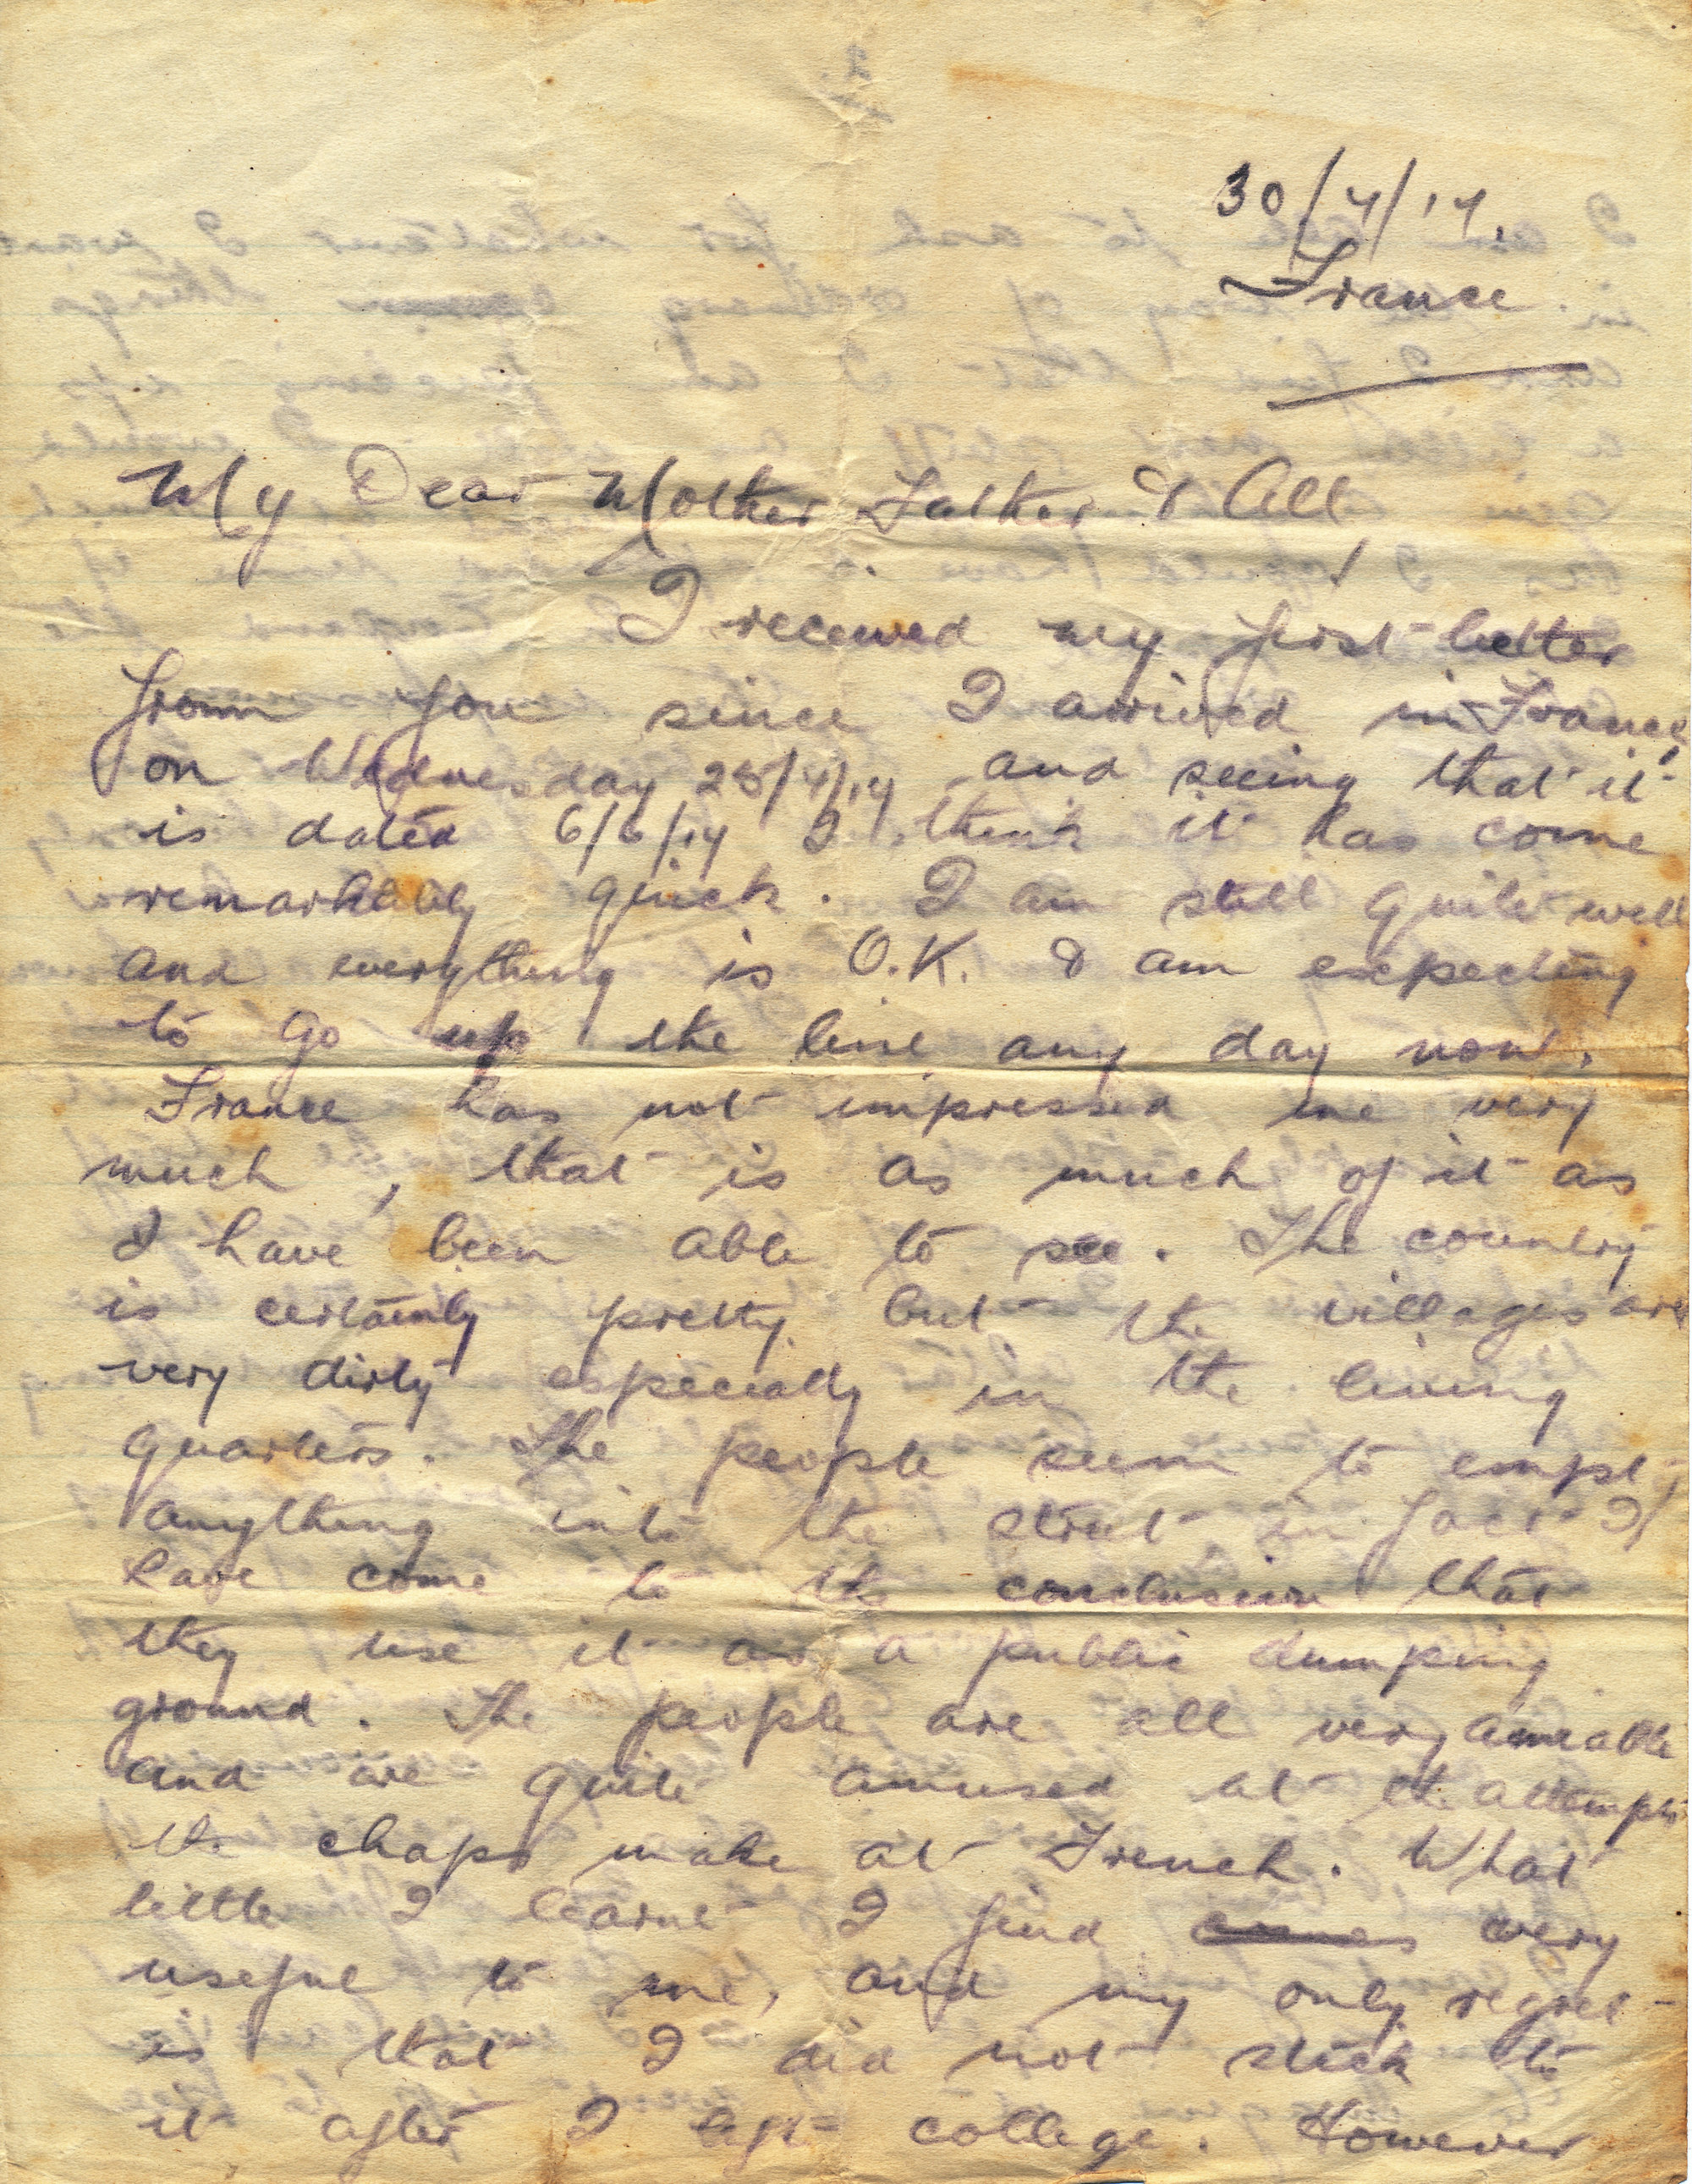 30/7/17.
France
My Dear Mother Father & All,
I received my first letter
from you since I arrived in France,
on Wednesday 25/7/17 and seeing that it
is dated 6/6/17 I think it has come
remarkably quick. I am still quite well
and everything is O.K. & am expecting
to go up the line any day now.
France has not impressed me very
much, that is as much of it as
I have been able to see. The country
is certainly pretty but the villages are
very dirty especially in the living
quarters. The people seem to empty
anything into the street in fact I
have come to the conclusion that
they use it as a public dumping
ground. The people are all very amiable
and are quite amused at the attempts
the chaps make at French. What
little I learnt I find comes very
useful to me, and my only regret
is that I did not stick to
it after I left college. However